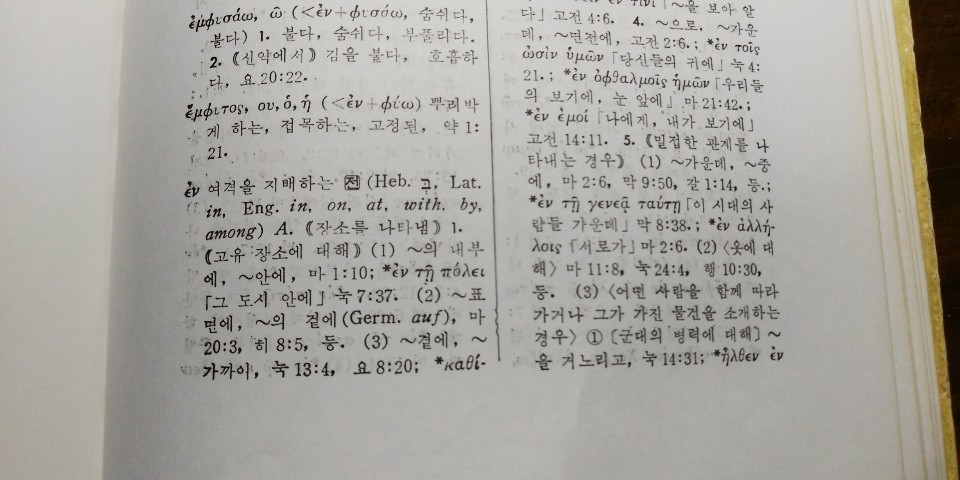 ἐμφυσάω, ῶ (<ἐν+φυσάω, 숨쉬다,
불다) 1. 불다, 숨쉬다, 부풀리다.
2. 《신약에서》 김을 불다, 호흡하
다, 요20:22.
ἔμφιτος, ου, ὁ, ἡ (<ἐν+φίω) 뿌리박
게 하는, 접목하는, 고정된, 약1:
21.
ἐν 여격을 지배하는 前 (Heb. בְּ, Lat.
in, Eng. in, on, at, with. by,
among) A. 《장소를 나타냄》 1.
《고유 장소에 대해》 (1) ～의 내부
에, ～안에, 마 1:10; *ἐν τῇ πόλει
「그 도시 안에」 눅 7:37. (2) ～표
면에, ～의 곁에 (Germ. auf), 마
20:3, 히 8:5, 등. (3) ～곁에, ～
가까이, 눅 13:4, 요 8:20; *καθί-
τινι 「～을 보아 알
다」 고전 4:6. 4. ～으로, ～가운
데, ～면전에, 고전 2:6.; *ἐν τοῖς
ὠσὶν ὑμῶν 「당신들의 귀에」 눅 4:
21.; *ἐν ὀφθαλμοῖς ἡμῶν 「우리들
의 보기에, 눈 앞에」 마 21:42.;
*ἐν ἐμοί 「나에게, 내가 보기에」
고전 14:11. 5. 《밀접한 관계를 나
타내는 경우》 (1) ～가운데, ～중
에, 마 2:6, 막 9:50, 갈 1:14, 등.;
*ἐν τῇ γενεᾷ ταύτῃ 「이 시대의 사
람들 가운데」 막 8:38.; *ἐν ἀλλή-
λοις 「서로가」 마 2:6. (2) 〈옷에 대
해〉 마 11:8, 눅 24:4, 행 10:30,
등. (3) 〈어떤 사람을 함께 따라
가거나 그가 가진 물건을 소개하는
경우〉 ① 〔군대의 병력에 대해〕 ～
을 거느리고, 눅 14:31; *ἦλθεν ἐν